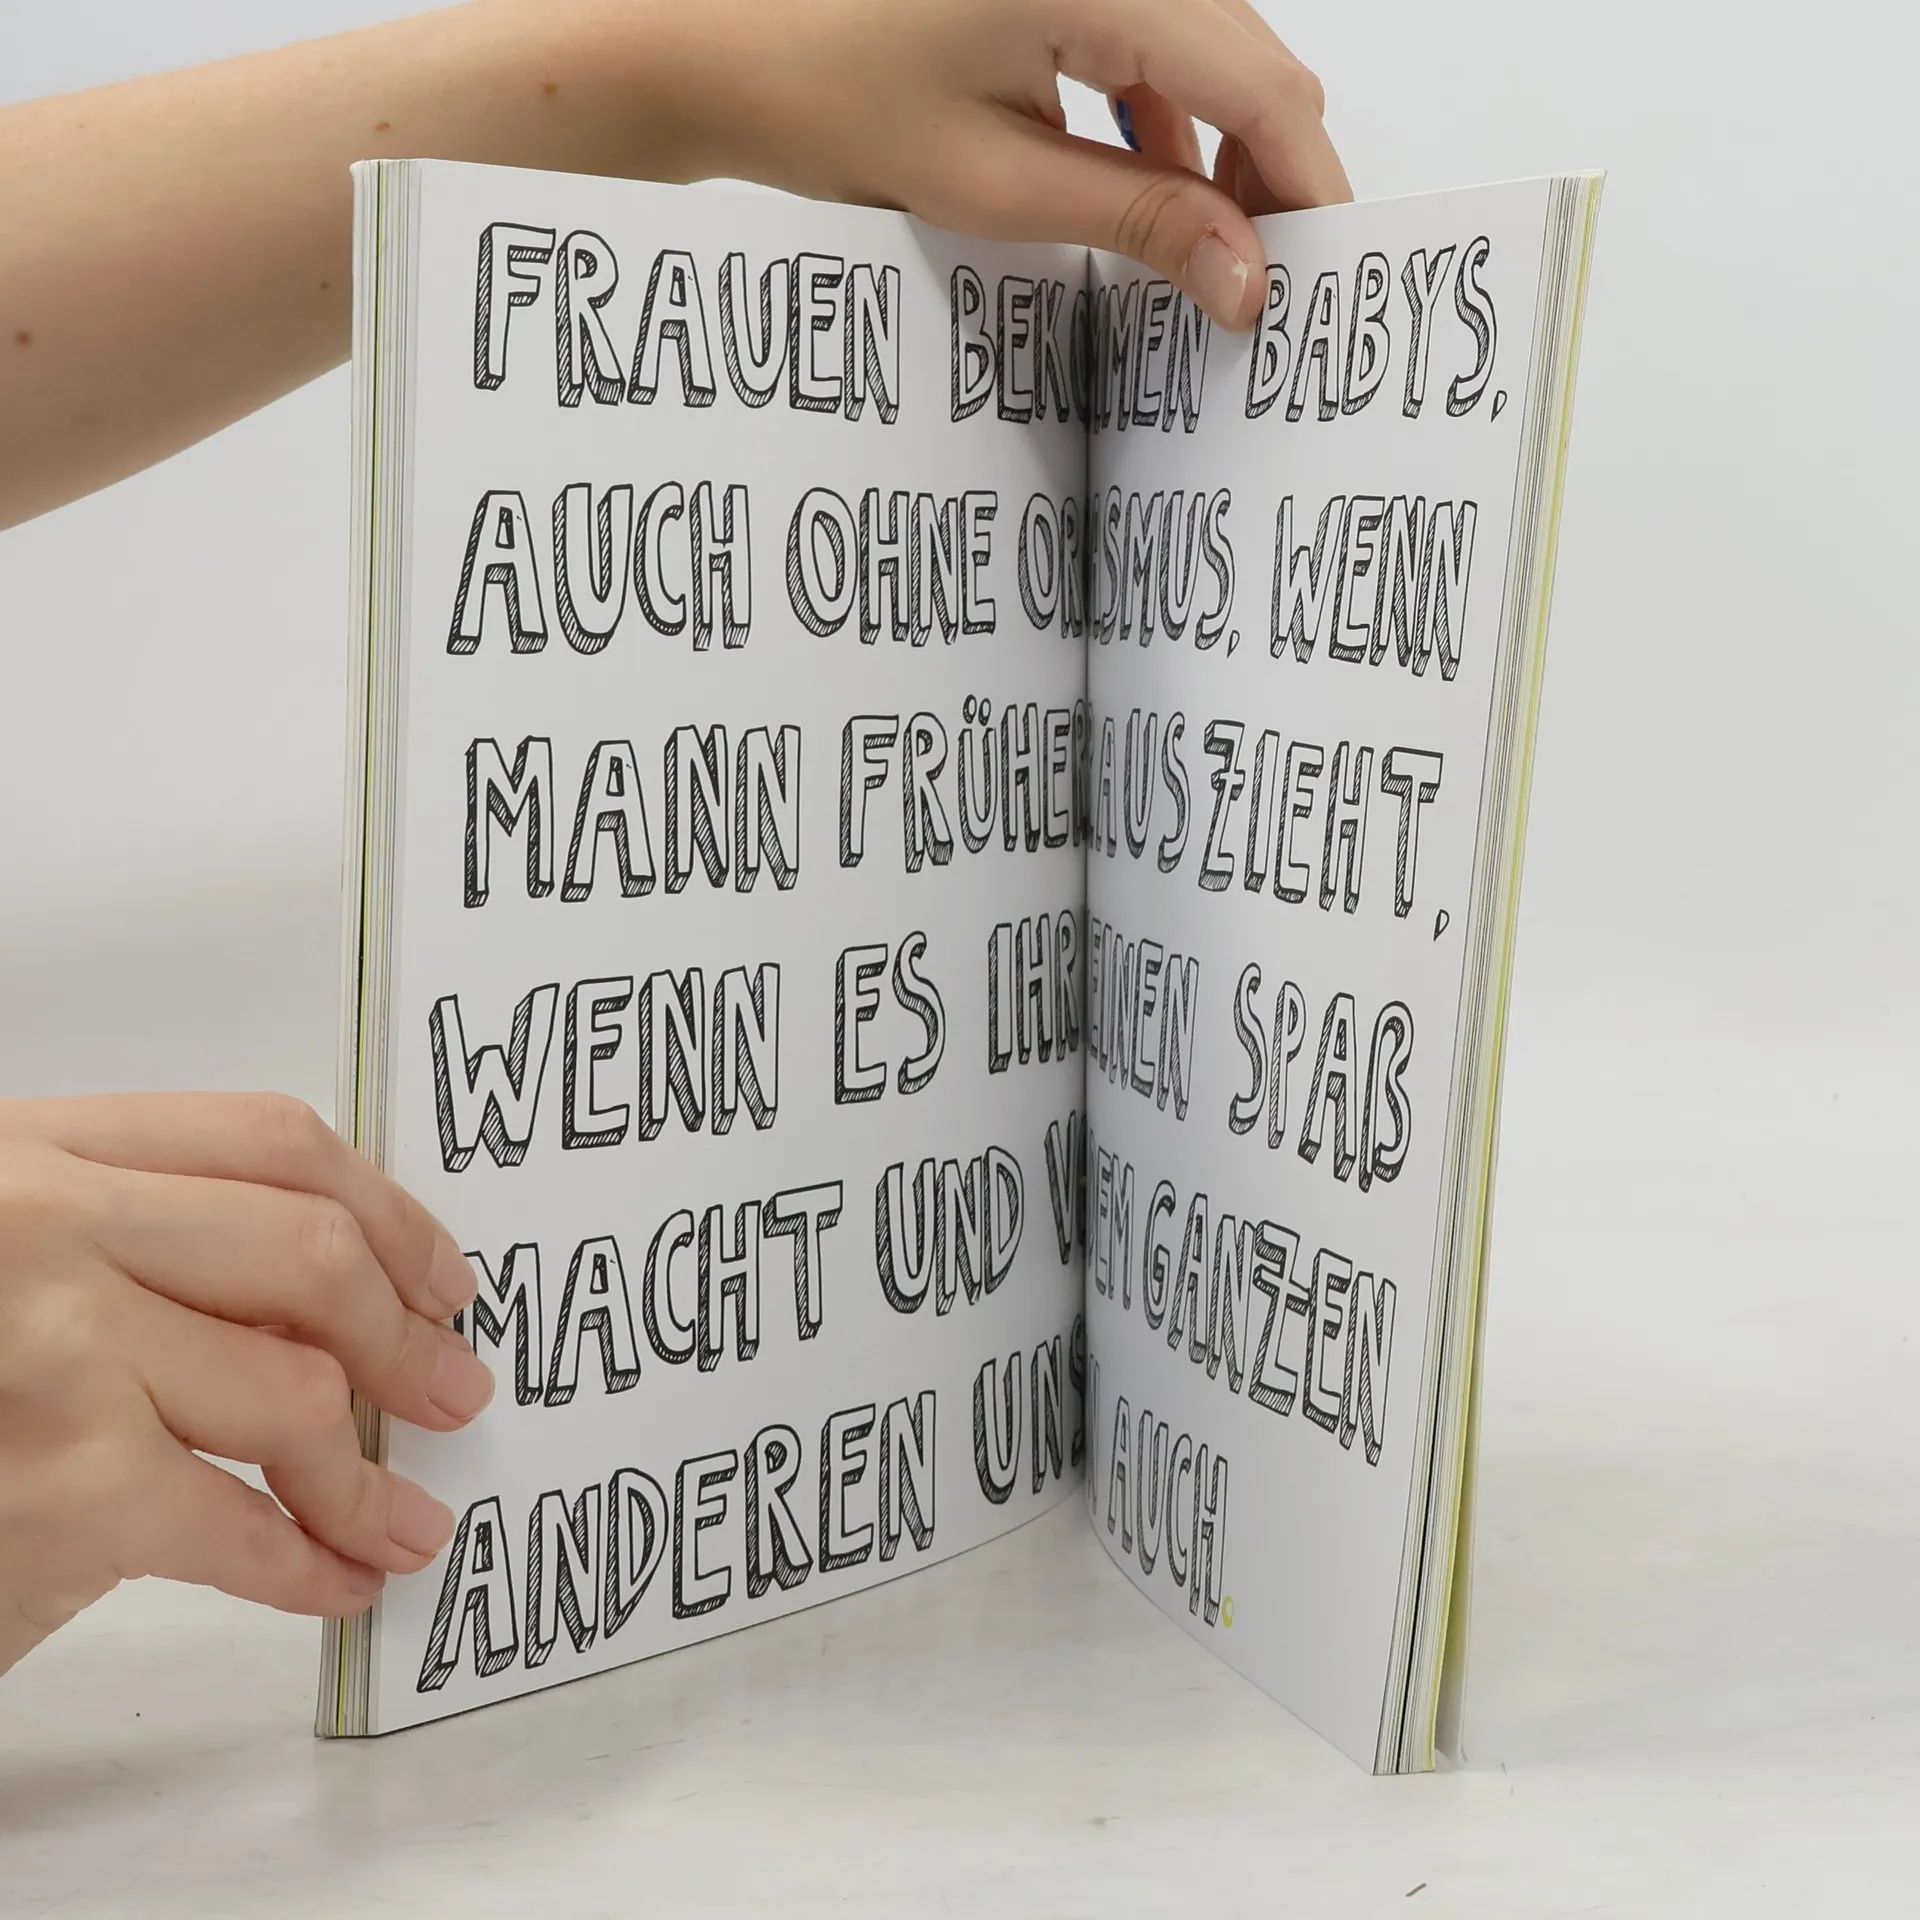 FRAUEN BEKOMMEN BABYS,
AUCH OHNE ORGASMUS, WENN
MANN FRÜHER AUSZIEHT,
WENN ES IHR KEINEN SPAß
MACHT UND GANZEN
ANDEREN UNS AUCH.